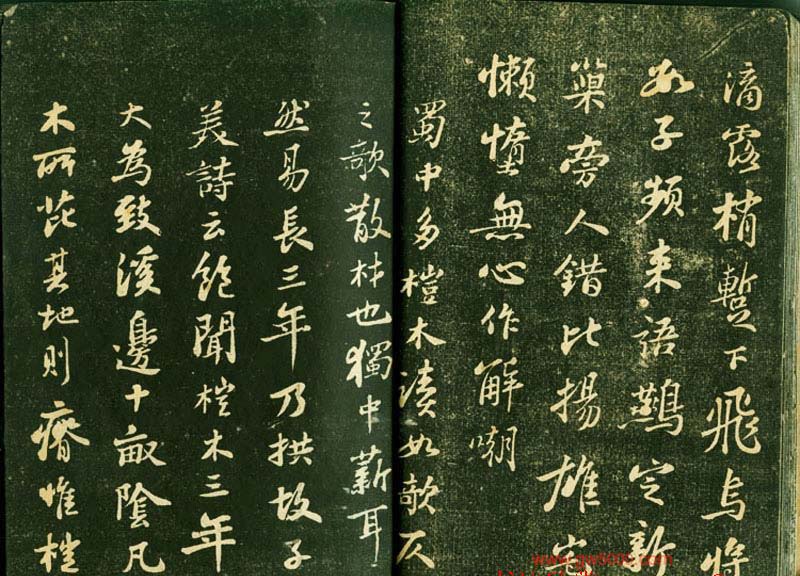 滴露梢暫下飛烏將
數子頻来語鷰定新
巢旁人錯比揚雄宅
懶惰無心作解嘲
蜀中多榿木讀如欹仄
之欹散材也獨中薪耳
然易長三年乃拱故子
美詩云飽聞榿木三年
大為致溪邊十畝陰凡
木所芘其地則瘠惟榿